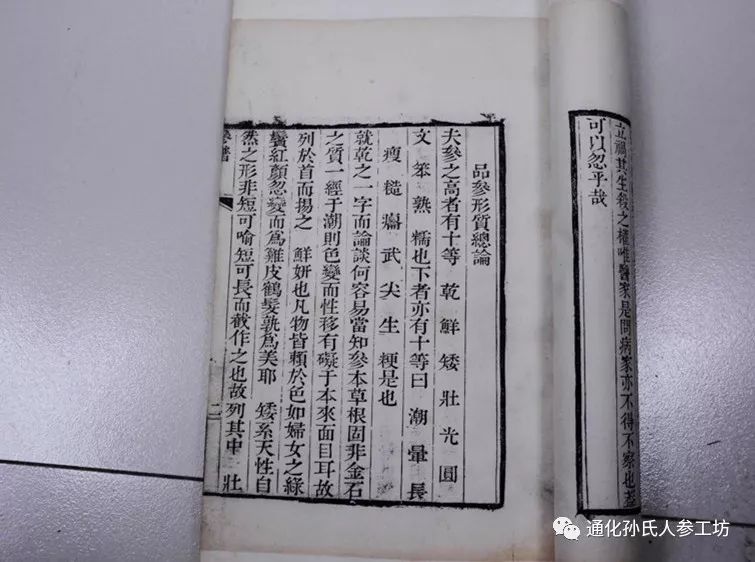 立禍其生殺之權唯醫家是問病家亦不得不察也
可以忽乎哉
品參形質總論
夫參之高者有十等 乾 鮮 矮 壯 光 圓
文 笨 熟 糯也下者亦有十等曰 潮 暈 長
瘦 糙 癟 武 尖 生 粳是也
就乾之一字而論談何容易當知參本草根固非金石
之質一經于潮則色變而性移有礙于本來面目耳故
列於首而揚之 鮮妍也凡物皆賴於色如婦女之綠
鬢紅顏忽變而爲雞皮鶴髮孰爲美耶 矮系天性自
然之形非短可喻短可長而截作之也故 列其中 壯
譜 二
通化孙氏人参工坊